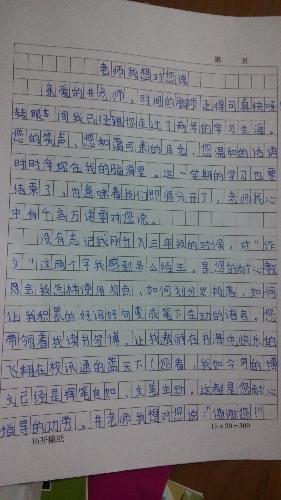 第 页
老师我想对您说
亲爱的井老师，时间的脚步走得可真快呀
转眼间我已经跟您走过了两年的学习生涯。
您的笑声、您和蔼可亲的目光，您温和的话语
时时浮现在我的脑海里。这一学期的学习也要
结束了，也意味着我们即将分开了，老师我心
中有千言万语要对您说。
没有忘记我刚升入三年级的时候，对“作
文”这两个字我感到多么陌生。是您的耐心教
导会我怎样使用标点、如何划分段落，如何
让我积累的好词好句变成笔下生动的语言。您
带领着我读书写博，让我翱翔在书海中快乐的
飞翔在校讯通的蓝天下！您看，我如今的博
文已经是挥笔自如、文笔生动，这都是您耐心
指导的功劳。井老师我想对您说：“谢谢您！”
16开稿纸
15×20=300